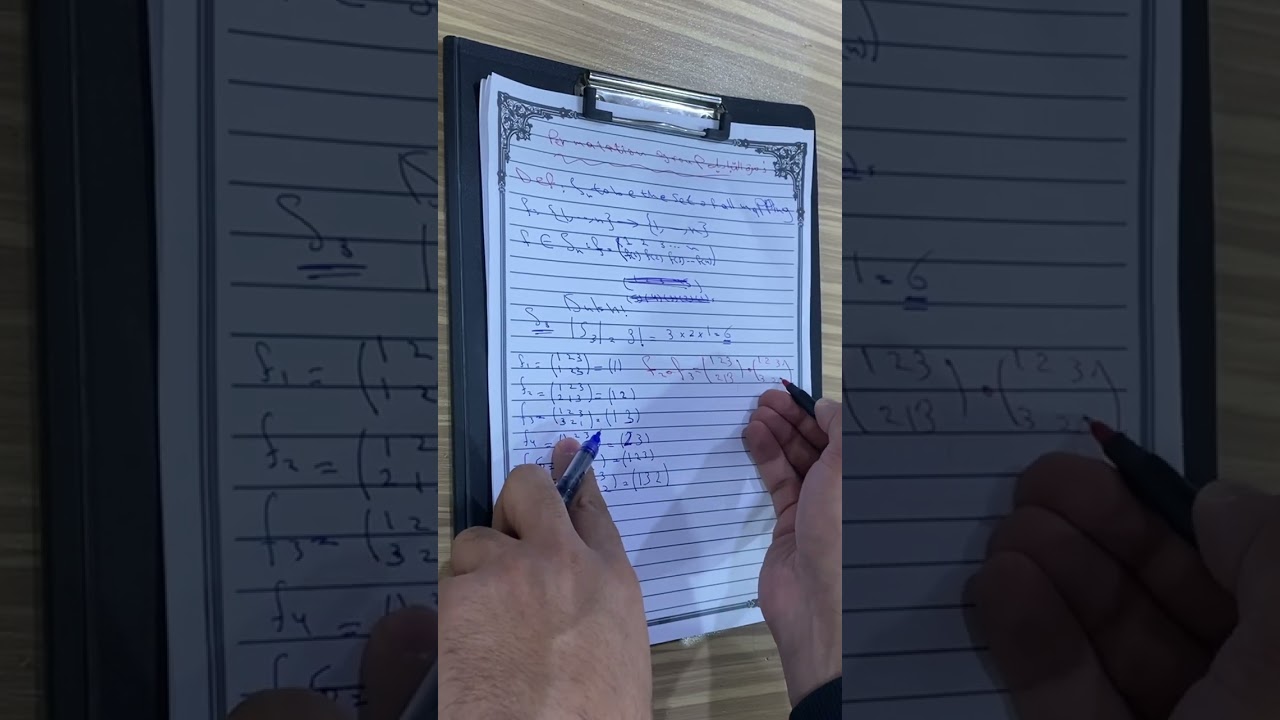 Permutation group زمرة التباديل:
Def: Sn to be the set of all mapping
f: {1, ..., n} → {1, ..., n}
f ∈ Sn : f = (1 2 3 ... n / f(1) f(2) f(3) ... f(n))
S3 |S3| = 3! = 3 × 2 × 1 = 6
f1 = (1 2 3 / 1 2 3) = (1) f2 ∘ f3 = (1 2 3 / 2 1 3) ∘ (1 2 3 / 3 2
f2 = (1 2 3 / 2 1 3) = (1 2)
f3 = (1 2 3 / 3 2 1) = (1 3)
f4 = = (2 3)
= (1 2 3)
= (1 3 2)